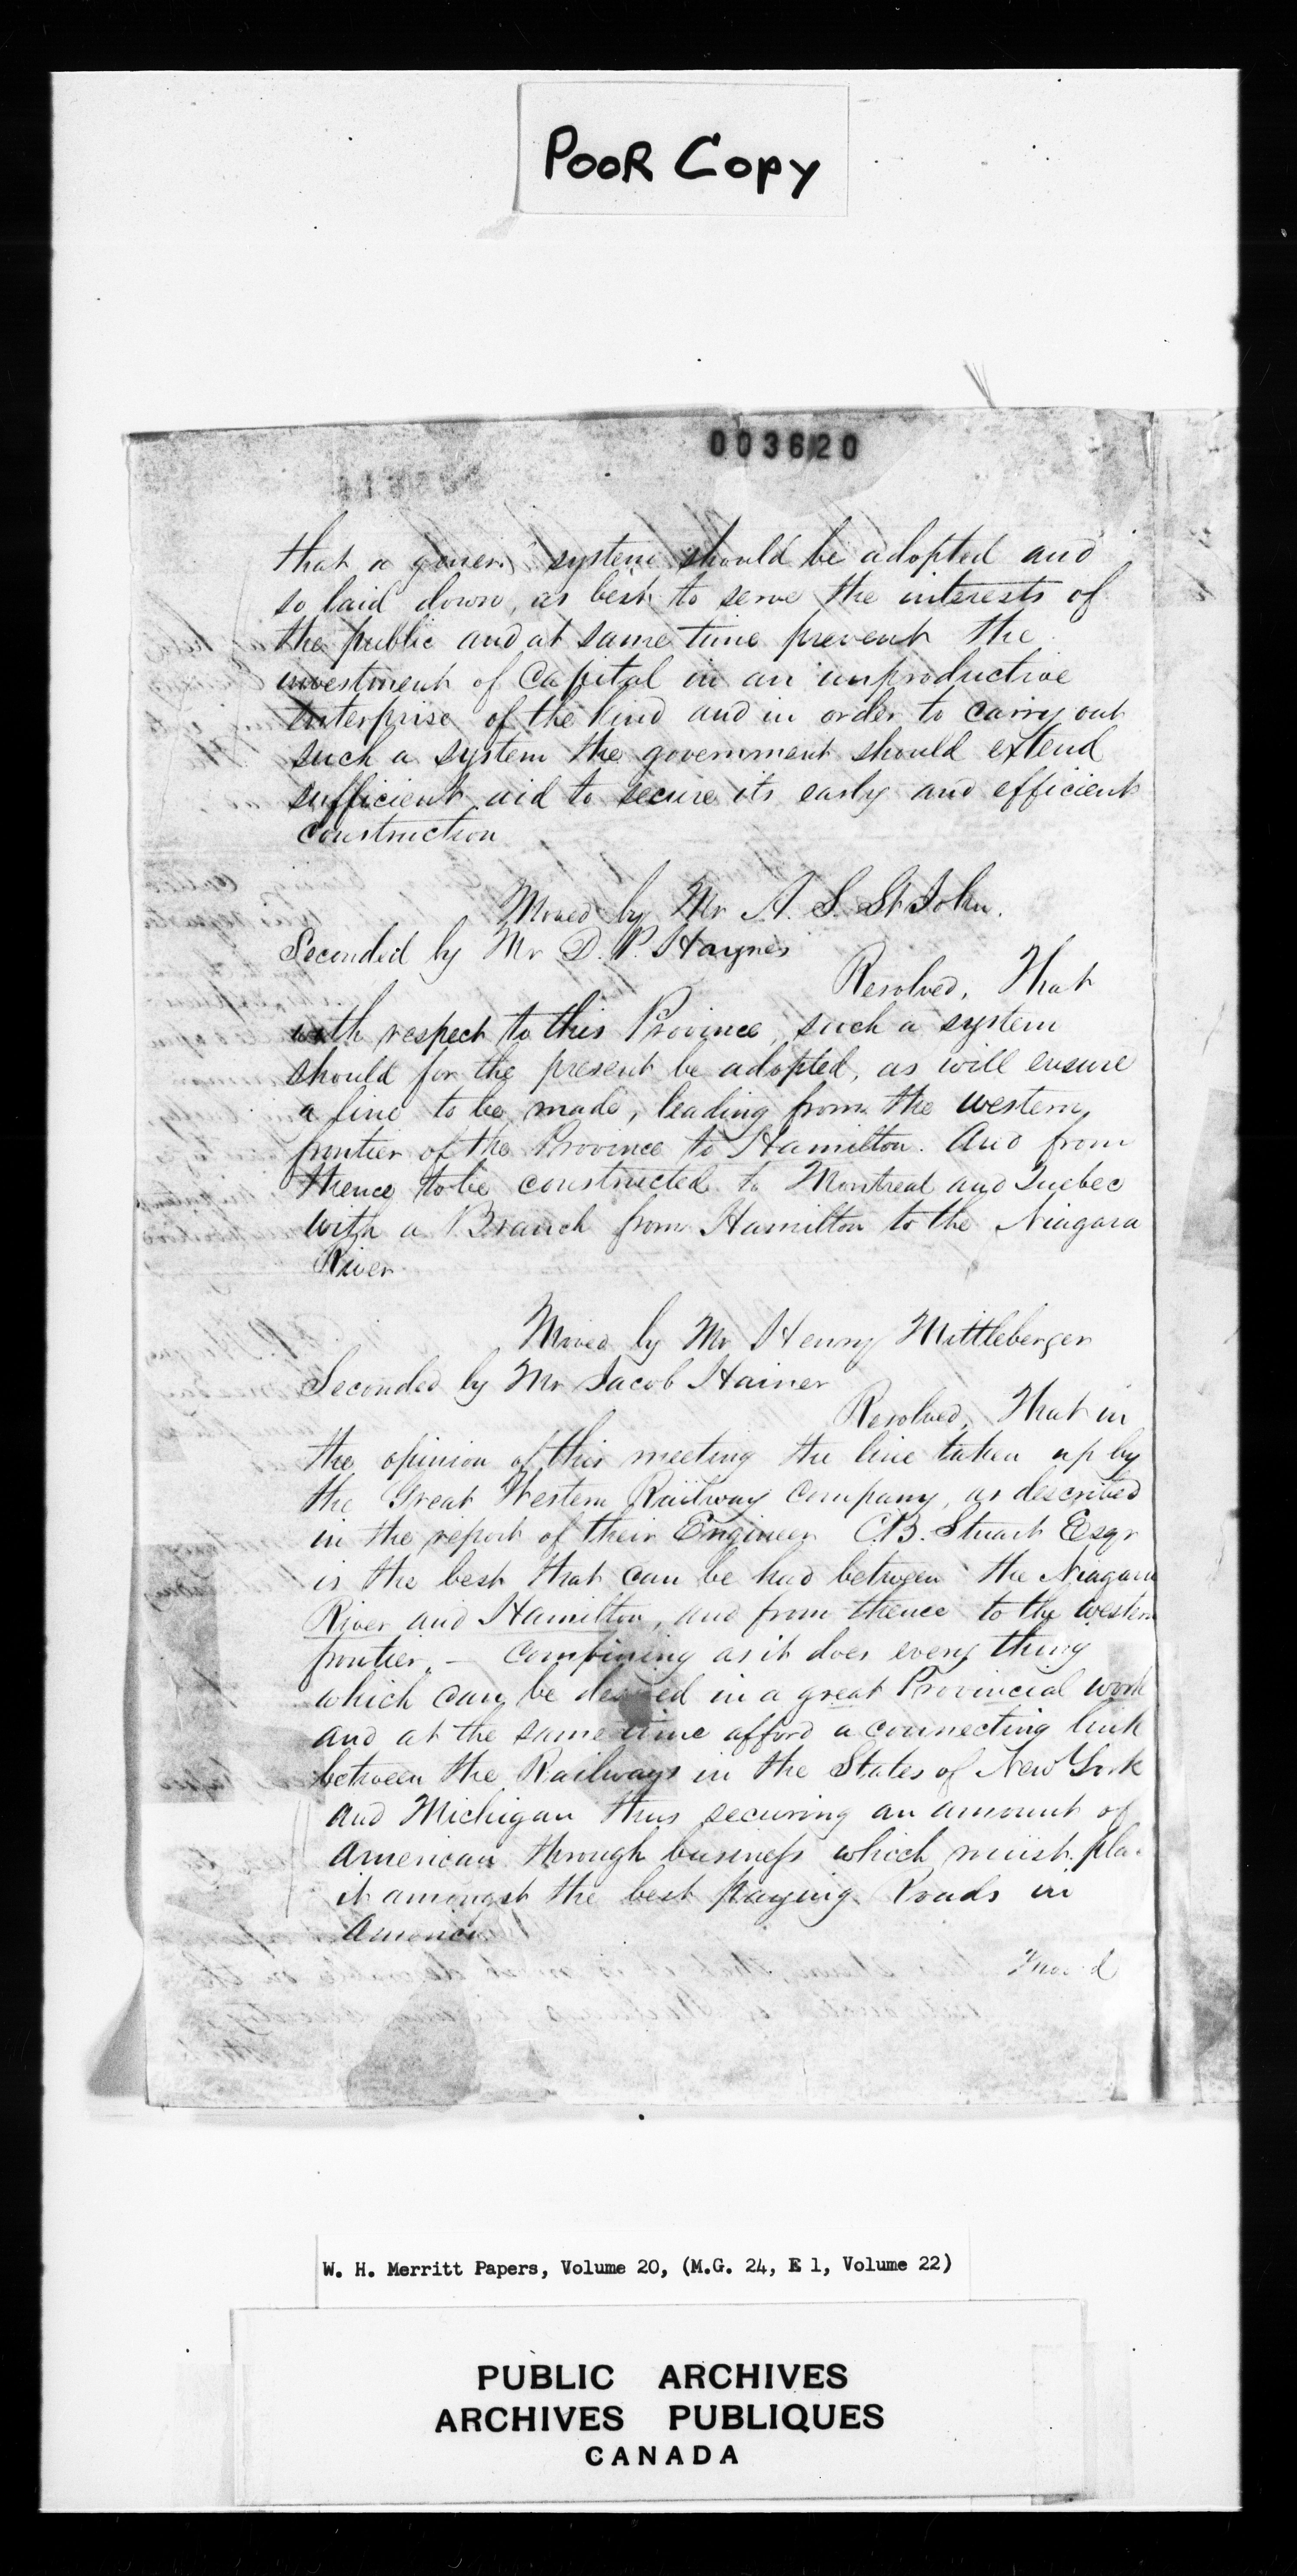 POOR COPY
003620
that a general system should be adopted and
so laid down, as best to serve the interests of
the public and at same time prevent the
investment of Capital in an unproductive
enterprise of the kind and in order to carry out
such a system the government should extend
sufficient aid to secure its early and efficient
construction
Moved by Mr A. S. St John.
Seconded by Mr D. P. Haynes
Resolved, That
with respect to this Province, such a system
should for the present be adopted, as will ensure
a line to be made, leading from the western
frontier of the Province to Hamilton. And from
thence to be constructed to Montreal and Quebec
with a Branch from Hamilton to the Niagara
River
Moved by Mr Henry Mittleberger
Seconded by Mr Jacob Hainer
Resolved, That in
the opinion of this meeting the line taken up by
the Great Western Railway Company, as described
in the report of their Engineer C.B. Stuart Esqr
is the best that can be had between the Niagara
River and Hamilton, and from thence to the western
frontier, — Combining as it does every thing
which can be desired in a great Provincial work
and at the same time afford a connecting link
between the Railways in the States of New York
and Michigan thus securing an amount of
American through business which must pla
it amongst the best paying Roads in
America
Moved
W. H. Merritt Papers, Volume 20, (M.G. 24, E 1, Volume 22)
PUBLIC ARCHIVES
ARCHIVES PUBLIQUES
CANADA